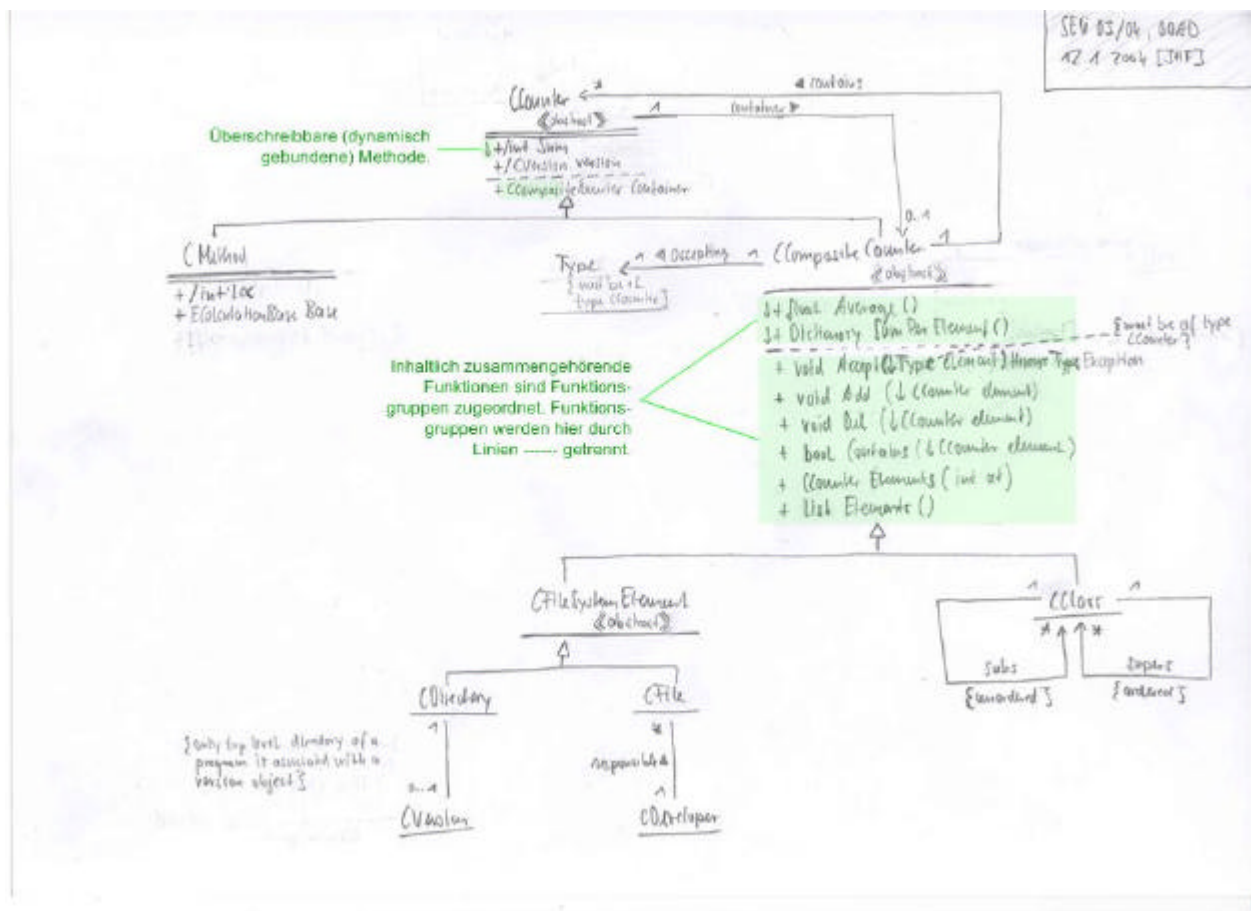 SEW 03/04, OOAD
12 1 2004 [JHF]
* ◄ contains
CCounter
1 container ►
«abstract»
Überschreibbare (dynamisch
gebundene) Methode.
↓+/int Sum
+/CVersion version
+ CCompositeCounter Container
0..1
CMethod
CCompositeCounter 1
Type
1 ◄ Accepting 1
«abstract»
type CCounter}
+/int LOC
+ ECalculationBase Base
↓+ float Average ()
↓+ Dictionary SumPerElement ()
{must be of type
CCounter}
Inhaltlich zusammengehörende
Funktionen sind Funktions-
gruppen zugeordnet. Funktions-
gruppen werden hier durch
Linien ------ getrennt.
+ void Accept (↓Type Element) throws TypeException
+ void Add (↓ CCounter element)
+ void Del (↓ CCounter element)
+ bool Contains (↓ CCounter element)
+ CCounter Elements (int at)
+ List Elements ()
CFileSystemElement
«abstract»
1 CClass 1
* *
Subs
{unordered}
Supers
{ordered}
CDirectory
CFile
1
*
{only top level directory of a
program is associated with a
version object}
responsible
0..1
1
CVersion
CDeveloper